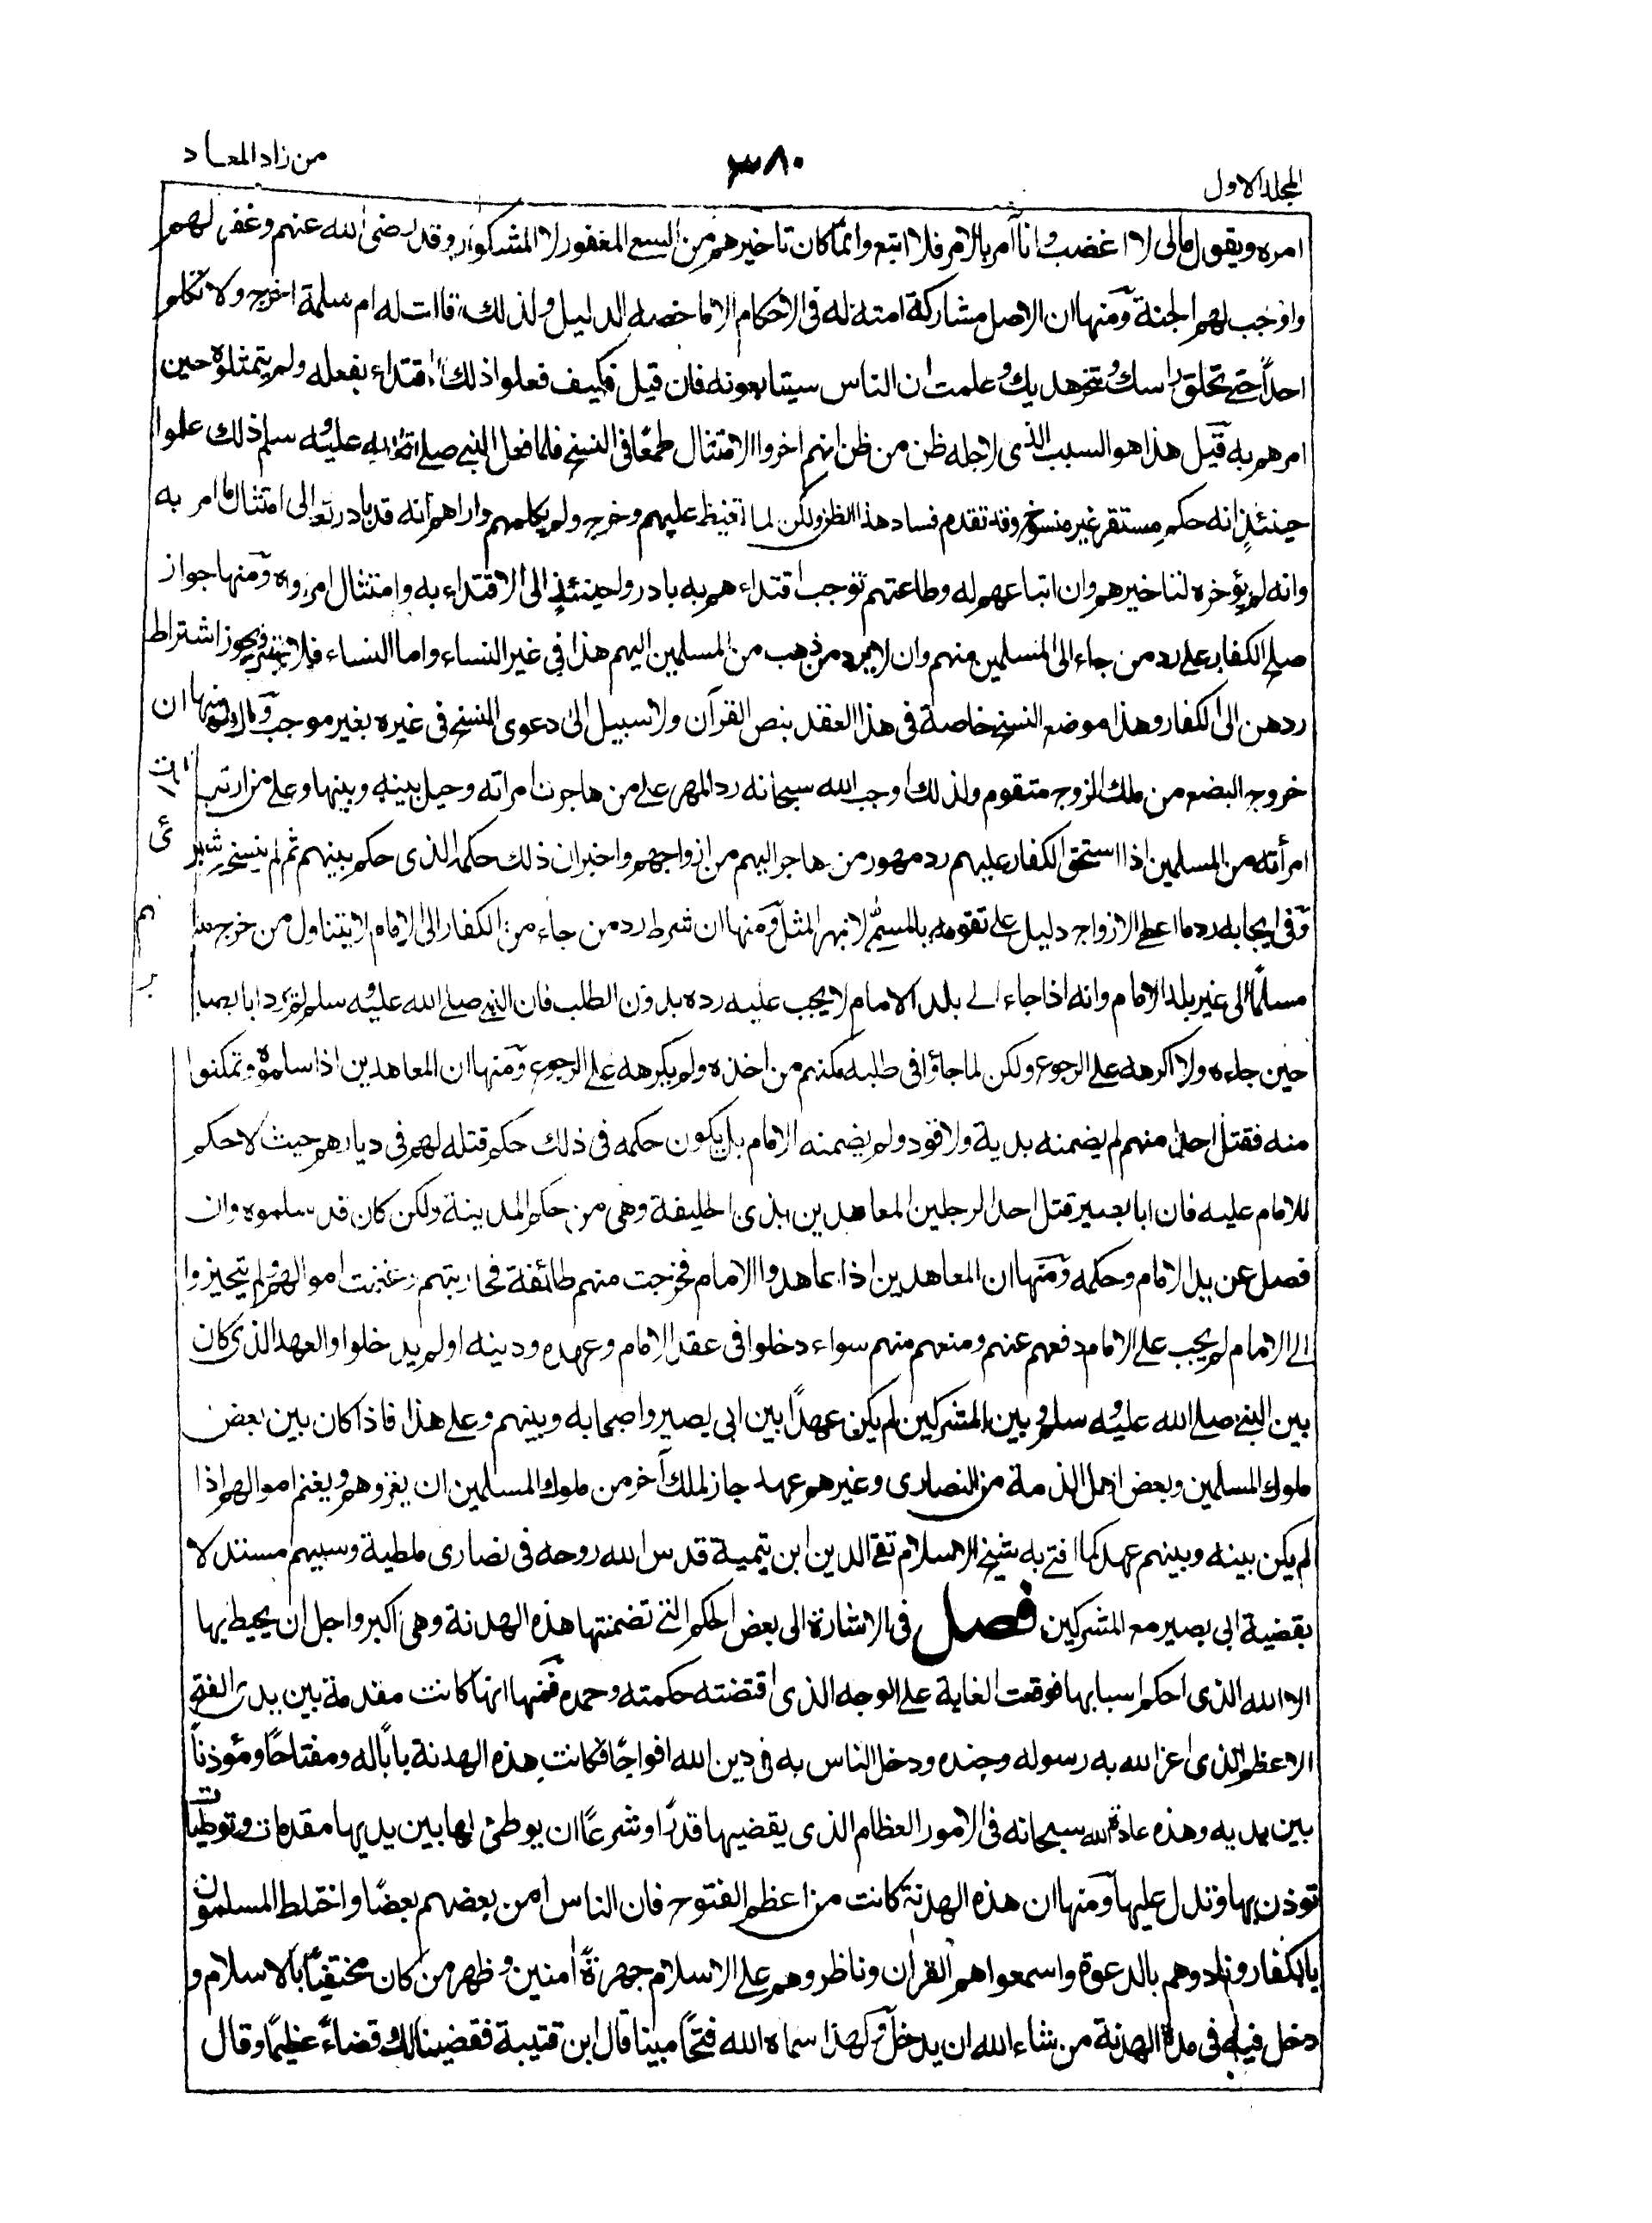 المجلد الاول
٣٨٠
من زاد المعاد
امره ويقول مالى لا اغضب وانا آمر بالامر فلا اتبع وانما كان تاخيرهم من السعى المغفور لا المشكور وقد رضى الله عنهم وغفر لهم
واوجب لهم الجنة ومنها ان الاصل مشاركة امته له فى الاحكام الا ما خصه الدليل ولذلك قالت له ام سلمة اخرج ولا تكلم
احداً حتى تحلق راسك وتنحر هديك وعلمت ان الناس سيتابعونه فان قيل فكيف فعلوا ذلك اقتداء بفعله ولم يمتثلوه حين
امرهم به قيل هذا هو السبب الذى لاجله ظن من ظن انهم اخروا الامتثال طمعًا فى النسخ فلما فعل النبى صلى الله عليه وسلم ذلك علموا
حينئذٍ انه حكم مستقر غير منسوخ وقد تقدم فساد هذا الظن ولكن لما تغيظ عليهم وخرج ولم يكلمهم واراهم انه قد بادر الى امتثال ما امر به
وانه لم يؤخره لتاخيرهم وان اتباعهم له وطاعتهم توجب اقتداءهم به بادروا حينئذٍ الى الاقتداء به وامتثال امره ومنها جواز
صلح الكفار على رد من جاء الى المسلمين منهم وان لا يرد من ذهب من المسلمين اليهم هذا فى غير النساء واما النساء فلا يجوز اشتراط
ردهن الى الكفار وهذا موضع النسخ خاصة فى هذا العقد بنص القرآن ولا سبيل الى دعوى النسخ فى غيره بغير موجب ومنها ان
خروج البضع من ملك الزوج متقوم ولذلك اوجب الله سبحانه رد المهر على من هاجرت امراته وحيل بينه وبينها وعلى من ارتدت
امرأته من المسلمين اذا استحق الكفار عليهم رد مهور من هاجر اليهم من ازواجهم واخبر ان ذلك حكمه الذى حكم بينهم ثم لم ينسخه شئ
وفى ايجابه رد ما اعطى الازواج دليل على تقومه بالمسمى لا بمهر المثل ومنها ان شرط رد من جاء من الكفار الى الامام لا يتناول من خرج منهم
مسلمًا الى غير بلد الامام وانه اذا جاء الى بلد الامام لا يجب عليه رده بدون الطلب فان النبى صلى الله عليه وسلم لم يرد ابا بصير
حين جاءه ولا اكرهه على الرجوع ولكن لما جاؤا فى طلبه مكنهم من اخذه ولم يكرهه على الرجوع ومنها ان المعاهدين اذا تسلموه وتمكنوا
منه فقتل احدا منهم لم يضمنه بدية ولا قود ولم يضمنه الامام بل يكون حكمه فى ذلك حكم قتله لهم فى ديارهم حيث لا حكم
للامام عليه فان ابا بصير قتل احد الرجلين المعاهدين بذى الحليفة وهى من حكم المدينة ولكن كان قد تسلموه وان
فصل عن يد الامام وحكمه ومنها ان المعاهدين اذا عاهدوا الامام فخرجت منهم طائفة فحاربتهم وغنمت اموالهم ولم يتحيزوا
الى الامام لم يجب على الامام دفعهم عنهم ومنعهم منهم سواء دخلوا فى عقد الامام وعهده ودينه او لم يدخلوا والعهد الذى كان
بين النبى صلى الله عليه وسلم وبين المشركين لم يكن عهدًا بين ابى بصير واصحابه وبينهم وعلى هذا فاذا كان بين بعض
ملوك المسلمين وبعض اهل الذمة من النصارى وغيرهم عهد جاز لملك آخر من ملوك المسلمين ان يغزوهم ويغنم اموالهم اذا
لم يكن بينه وبينهم عهد كما افتى به شيخ الاسلام تقى الدين ابن تيمية قدس الله روحه فى نصارى ملطية وسبيهم مستدلا
بقضية ابى بصير مع المشركين فصل فى الاشارة الى بعض الحكم التى تضمنتها هذه الهدنة وهى اكبر واجل ان يحيط بها
الا الله الذى احكم اسبابها فوقعت الغاية على الوجه الذى اقتضته حكمته وحمده فمنها انها كانت مقدمة بين يدى الفتح
الاعظم الذى اعز الله به رسوله وجنده ودخل الناس به فى دين الله افواجًا فكانت هذه الهدنة بابًا له ومفتاحًا ومؤذناً
بين يديه وهذه عادة الله سبحانه فى الامور العظام الذى يقضيها قدرًا وشرعًا ان يوطئ لها بين يديها مقدمات وتوطيات
توذن بها وتدل عليها ومنها ان هذه الهدنة كانت من اعظم الفتوح فان الناس امن بعضهم بعضًا واختلط المسلمون
بالكفار ونادوهم بالدعوة واسمعواهم القران وناظروهم على الاسلام جهرة آمنين وظهر من كان مختفيًا بالاسلام و
دخل فيه فى مدة الهدنة من شاء الله ان يدخل ولهذا سماه الله فتحًا مبينا قال ابن قتيبة فقضينا لك قضاءً عظيمًا وقال